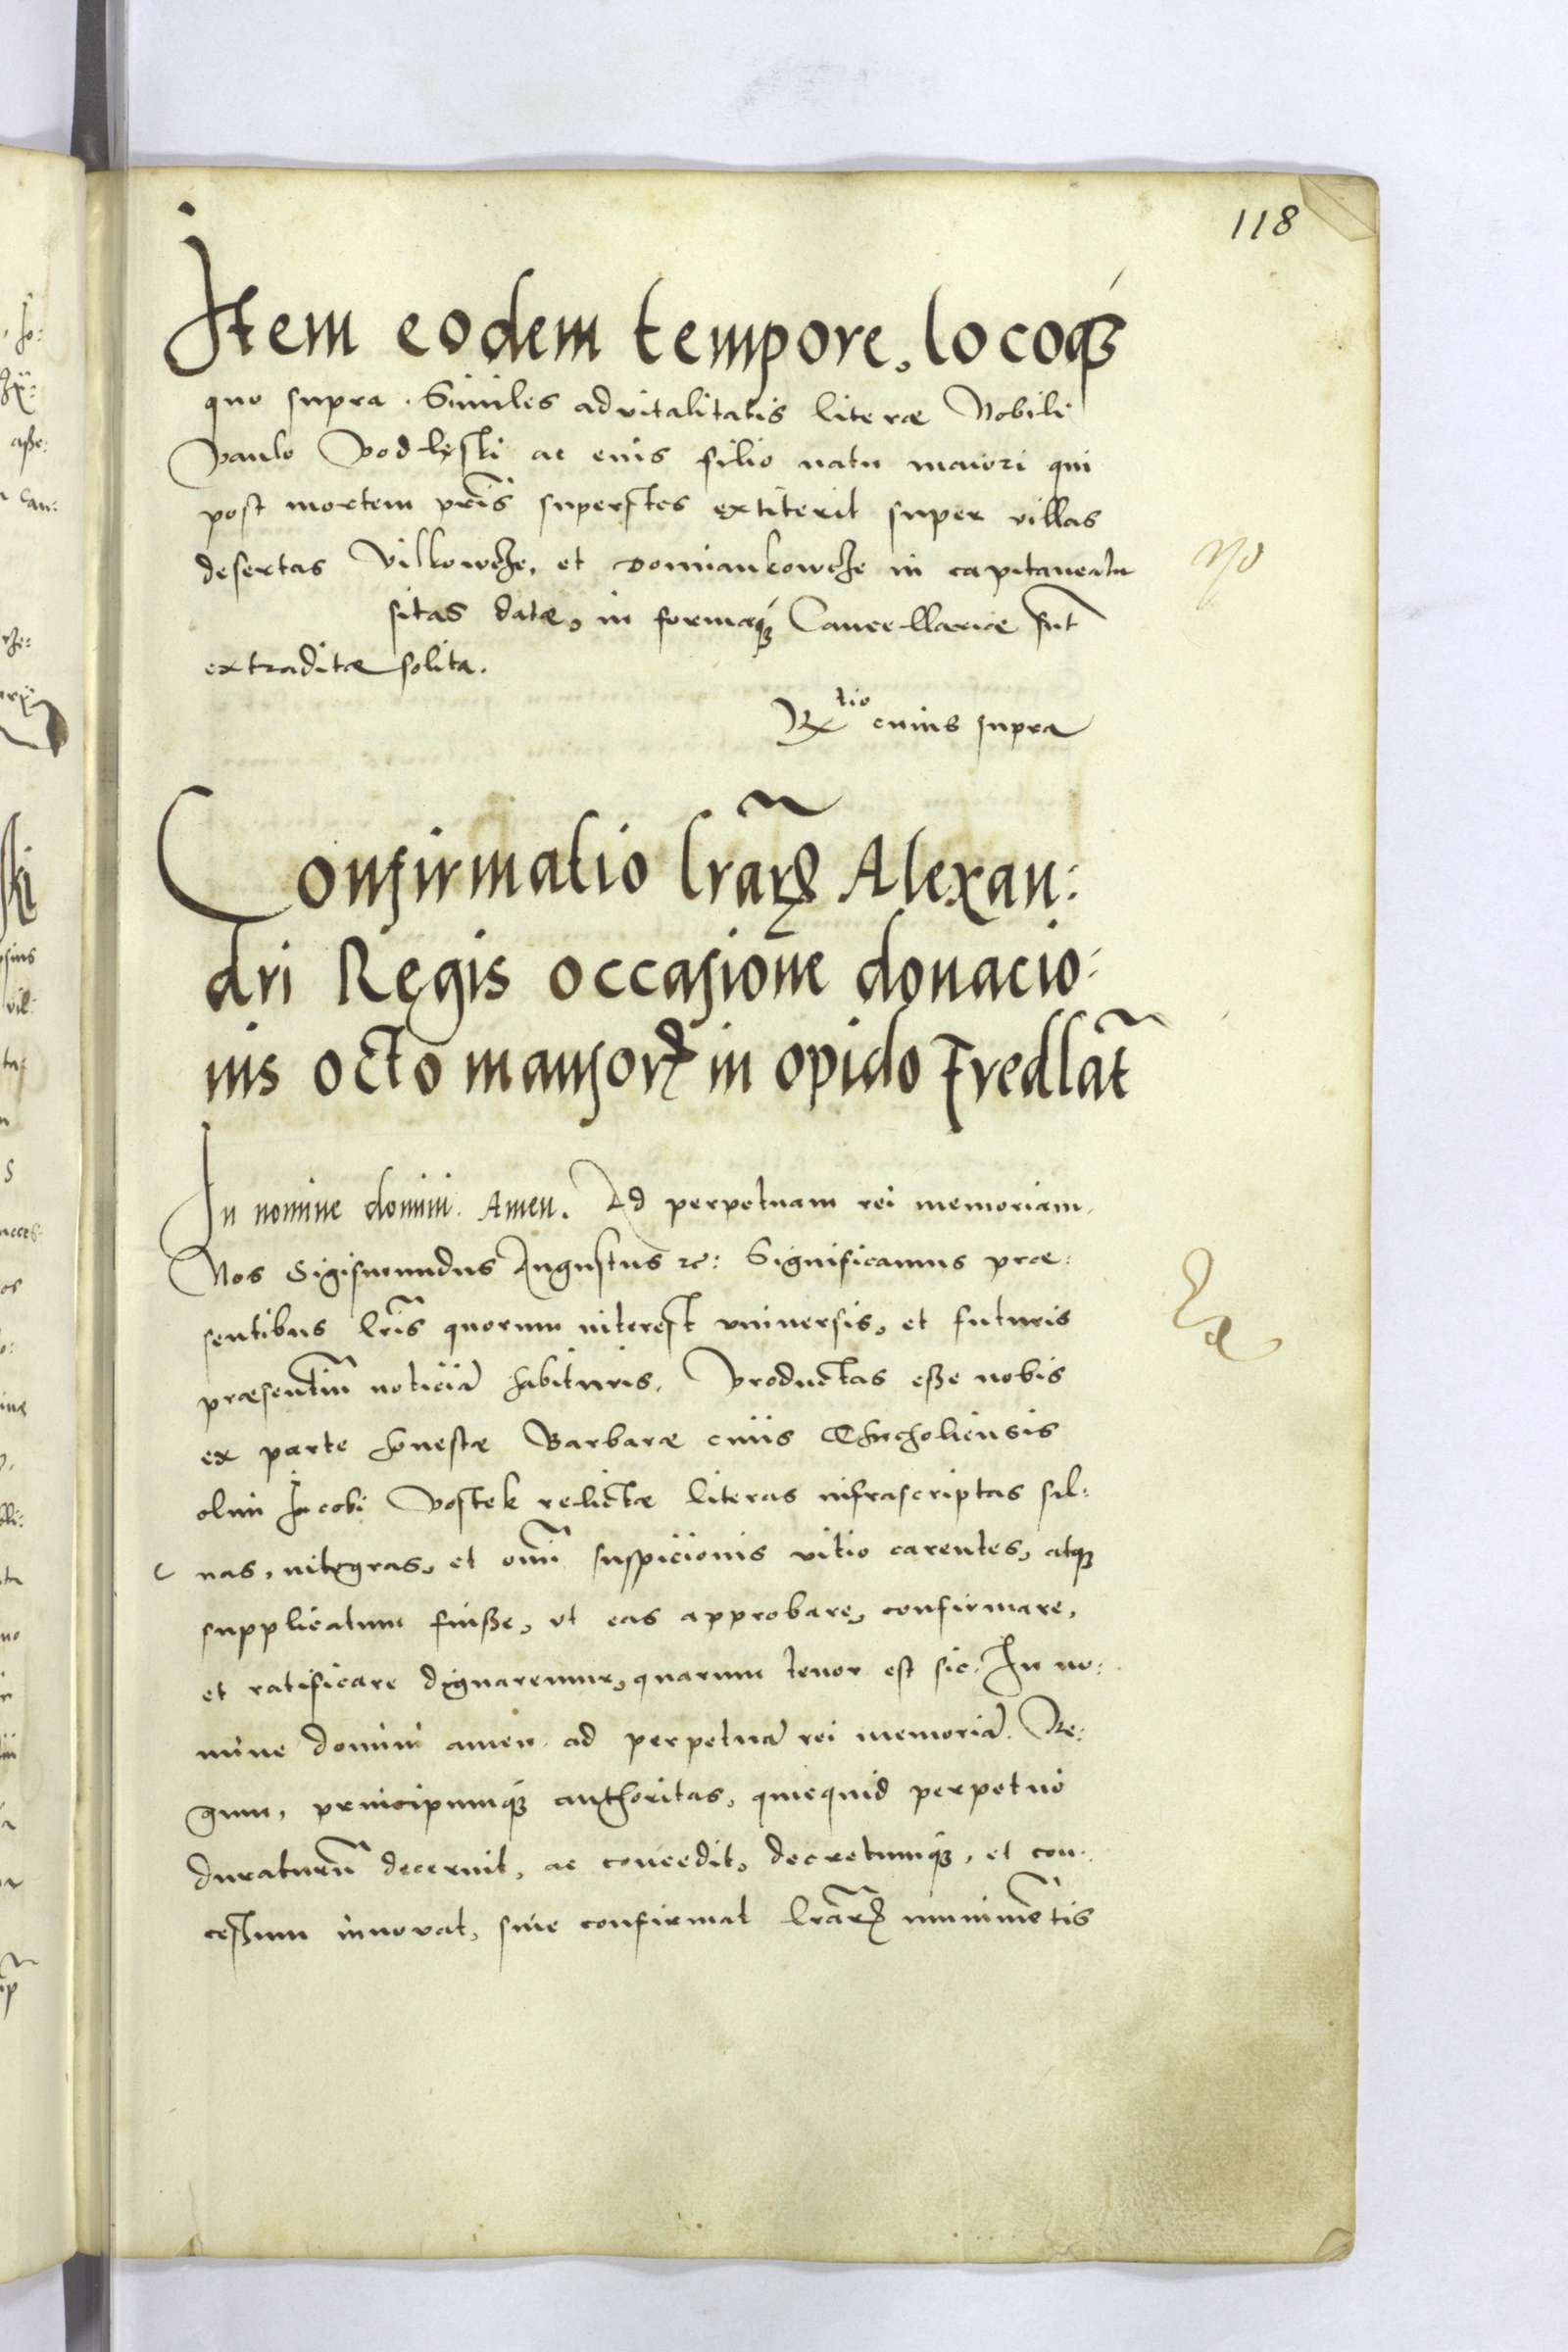 118
Item eodem tempore, locoq́ꝫ
quo supra. Similes advitalitatis literæ Nobili
Paulo Podlęski ac eius filio natu maiori qui
post mortem pr̃is superstes extiterit super villas
desertas Vilkowcze, et Domiankowcze in capitaneatu
sitas datæ, in formaq́ꝫ Cancellariæ sunt
extraditæ solita.
Rtio cuius supra
Confirmatio lr̃arꝝ Alexan:
dri Regis occasione donacio:
nis octo mansorꝝ in opido Fredlãt
In nomine domini. Amen. Ad perpetuam rei memoriam.
Nos Sigismundus Augustus ꝛc: Significamus præ:
sentibus lr̃is quorum interest vniversis, et futuris
præsentiũ noticiã habituris. Productas eße nobis
ex parte honestæ Barbaræ civis Thucholiensis
olim Jacobi Postek relictæ literas infrascriptas sal:
uas, integras, et om̃i suspicionis vitio carentes, atqꝫ
supplicatum fuiße, vt eas approbare, confirmare,
et ratificare dignaremur, quarum tenor est sic. In no:
mine domini amen. ad perpetuã rei memoriã. Re:
gum, principumq́ꝫ authoritas, quicquid perpetuo
duraturũ decernit, ac concedit, decretumq́ꝫ, et con:
ceßum innovat, siue confirmat lr̃arꝝ munimẽtis